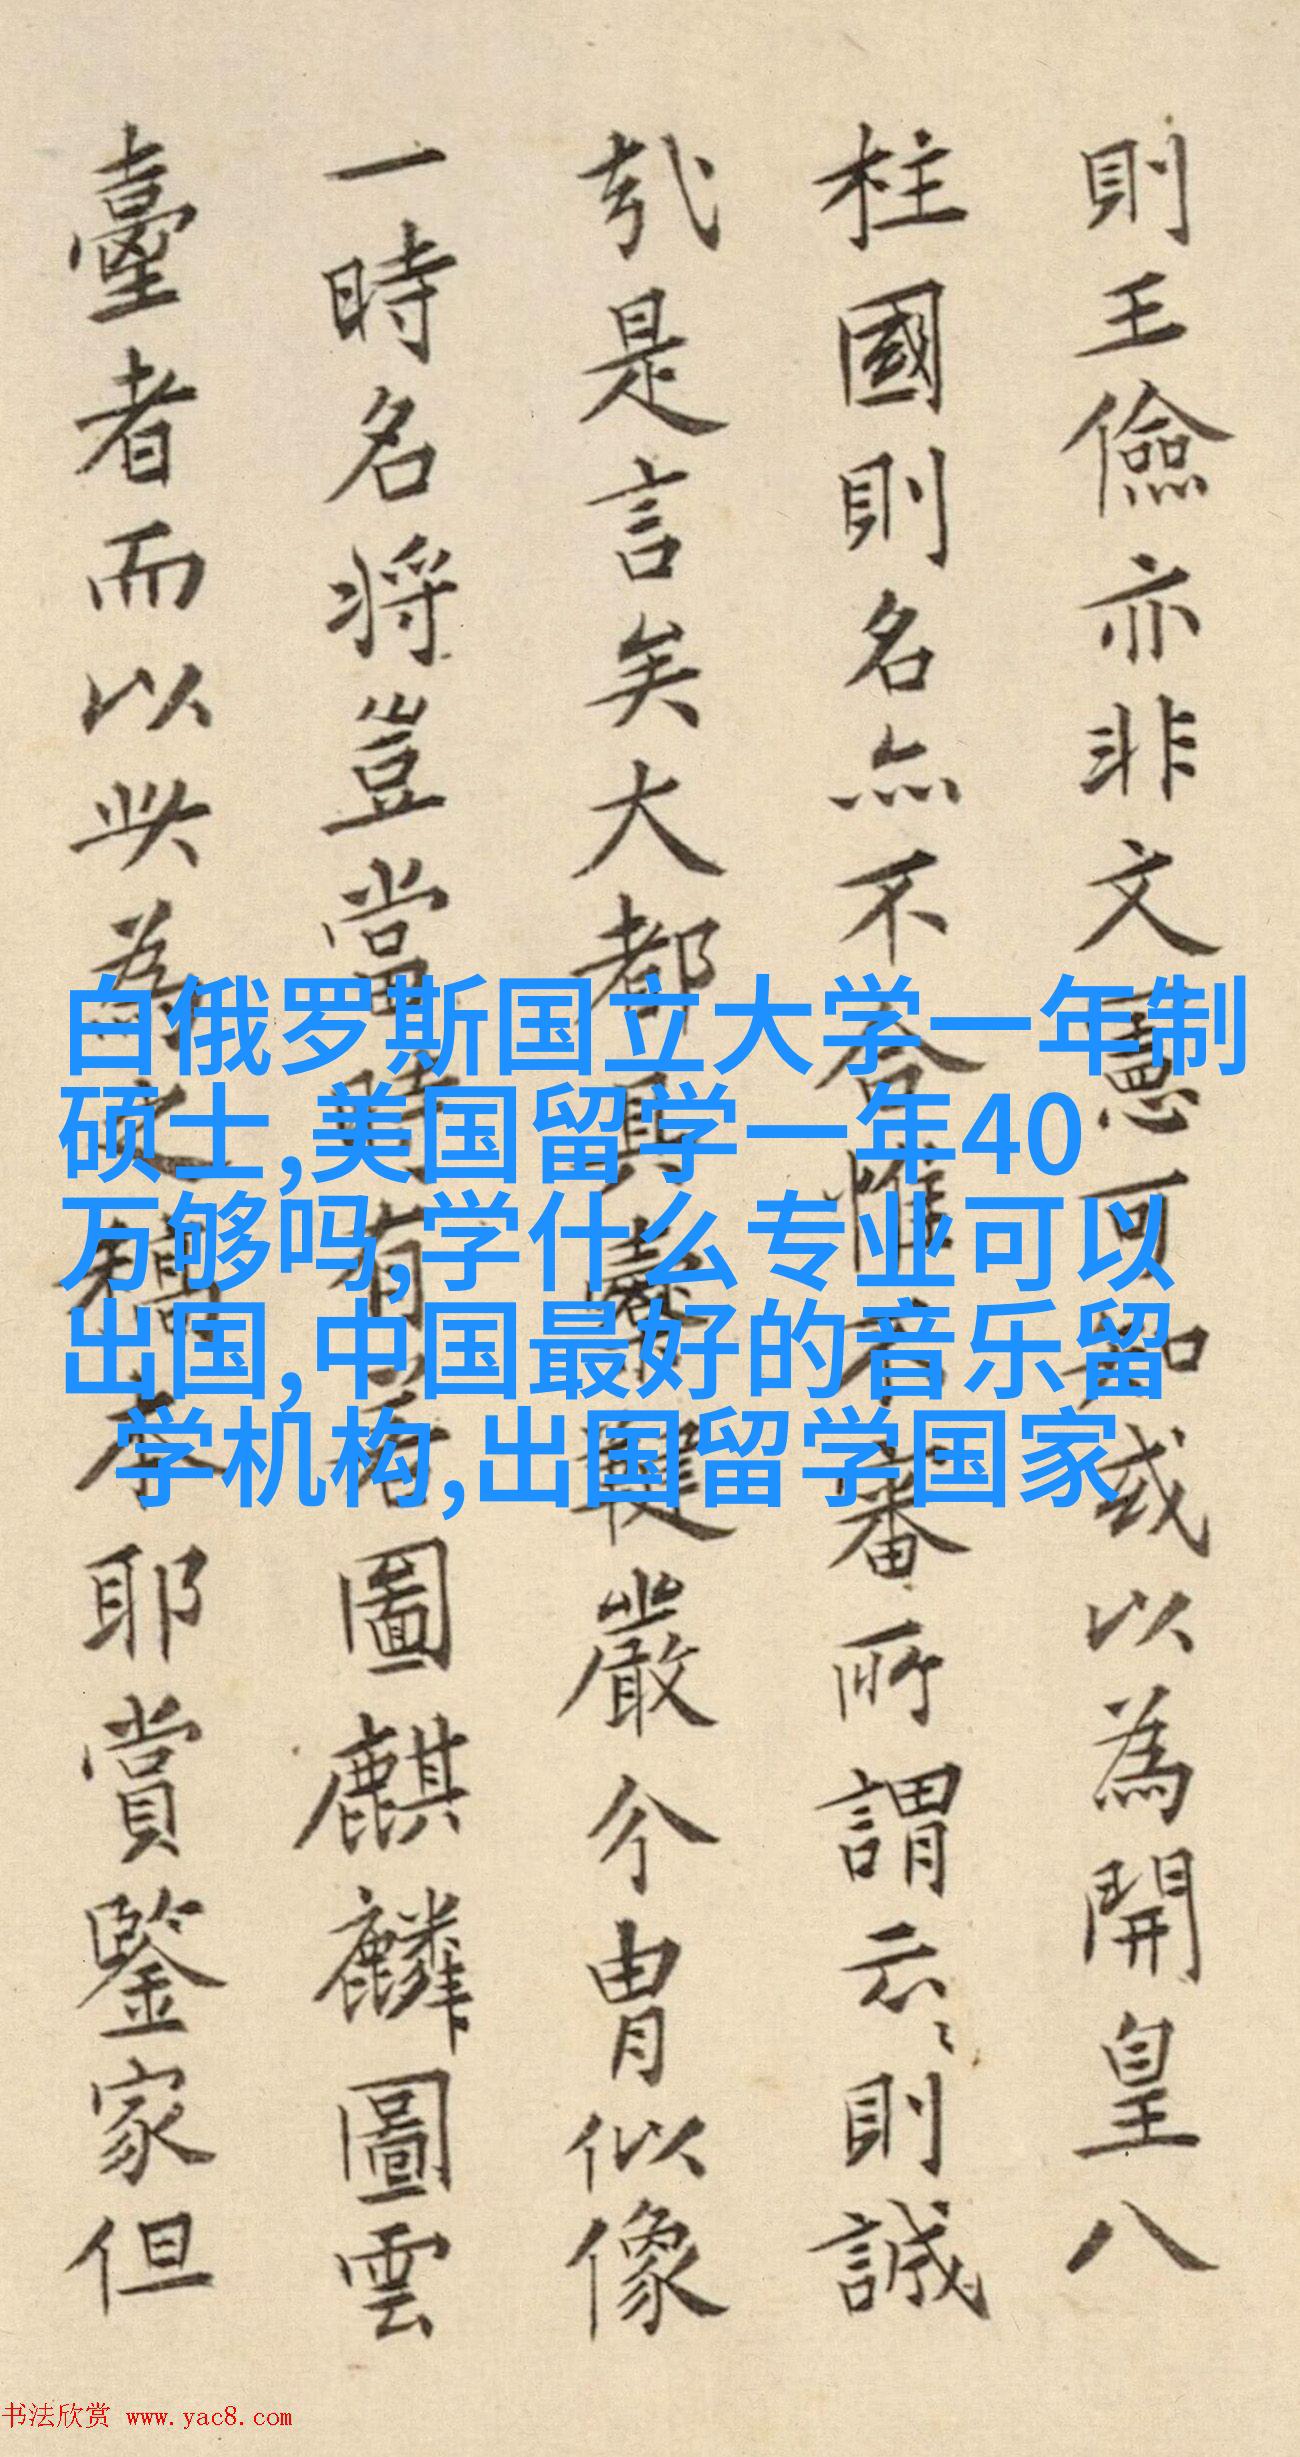 則王儉亦非文憲可知或以為開皇八
柱國則名亦不合惟不審所謂云〻則誠
哉是言矣大都具櫜鞬嚴介冑似像
一時名將豈當時有著圖麒麟圖雲
臺者而以此為之稿本耶賞鑒家但
白俄罗斯国立大学一年制
硕士,美国留学一年40
万够吗,学什么专业可以
出国,中国最好的音乐留
学机构,出国留学国家
书法欣赏 www.yac8.com